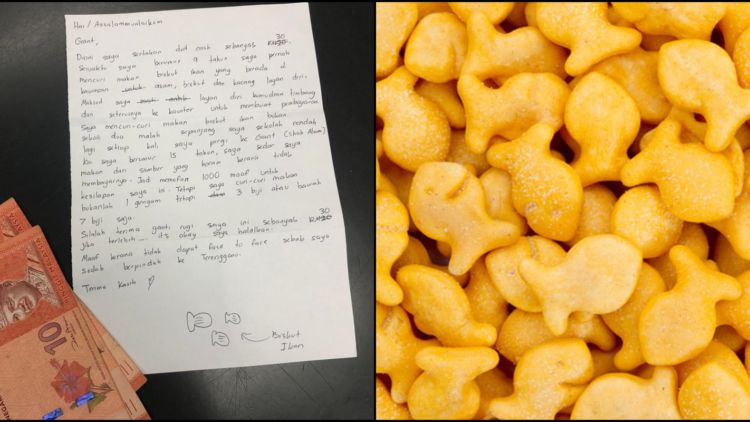 Hai / Assalammualaikum
Giant,
30
Disini saya sertakan duit cash sebanyak RM20.
Sewaktu saya berumur 9 tahun saya pernah
mencuri makan biskut ikan yang berada di
bawasan untuk asam, biskut dan kacang layan diri.
Maksud saya layan diri kemudian timbang
dan seterusnya ke kaunter untuk membuat pembayaran.
Saya mencuri-curi makan biskut ikan bukan
sekali dua malah sepanjang saya sekolah rendah
lagi setiap kali saya pergi ke Giant (Shah Alam)
Ku saya berumur 15 tahun, saya sedar saya
makan dari sumber yang haram kerana tidak
membayarnya. Jadi memohon 1000 maaf untuk
kesilapan saya ini. Tetapi saya curi-curi makan
bukanlah 1 gengam tetapi 3 biji atau bawah
7 biji saja.
30
Silalah terima ganti rugi saya ini sebanyak RM20
jika terlebih... its okay saya halalkan.
Maaf kerana tidak dapat face to face sebab saya
sudah berpindah ke Terengganu.
Terima Kasih
Biskut
Ikan
10